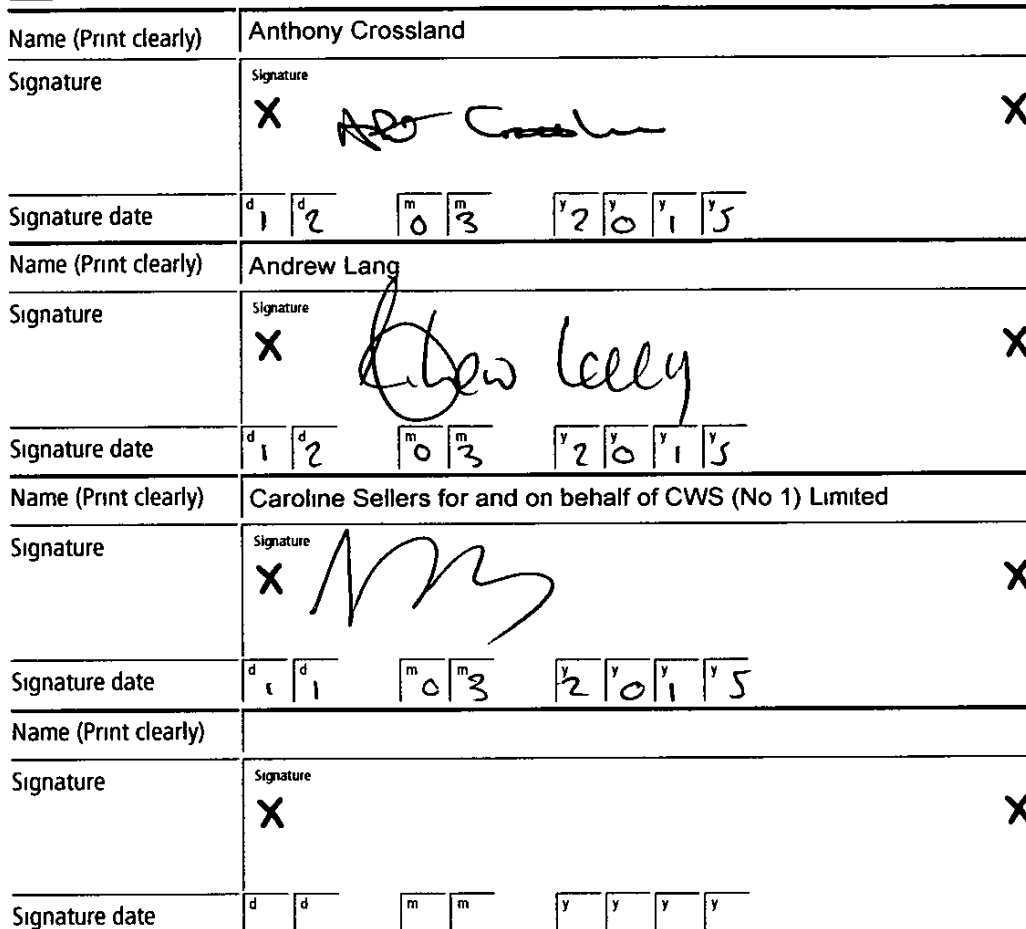 Name (Print clearly) Anthony Crossland
Signature Signature
X Crossland X
Signature date d1 d2 m0 m3 y2 y0 y1 y5
Name (Print clearly) Andrew Lang
Signature Signature
X Andrew X
Signature date d1 d2 m0 m3 y2 y0 y1 y5
Name (Print clearly) Caroline Sellers for and on behalf of CWS (No 1) Limited
Signature Signature
X X
Signature date d1 d1 m0 m3 y2 y0 y1 y5
Name (Print clearly)
Signature Signature
X X
Signature date d d m m y y y y